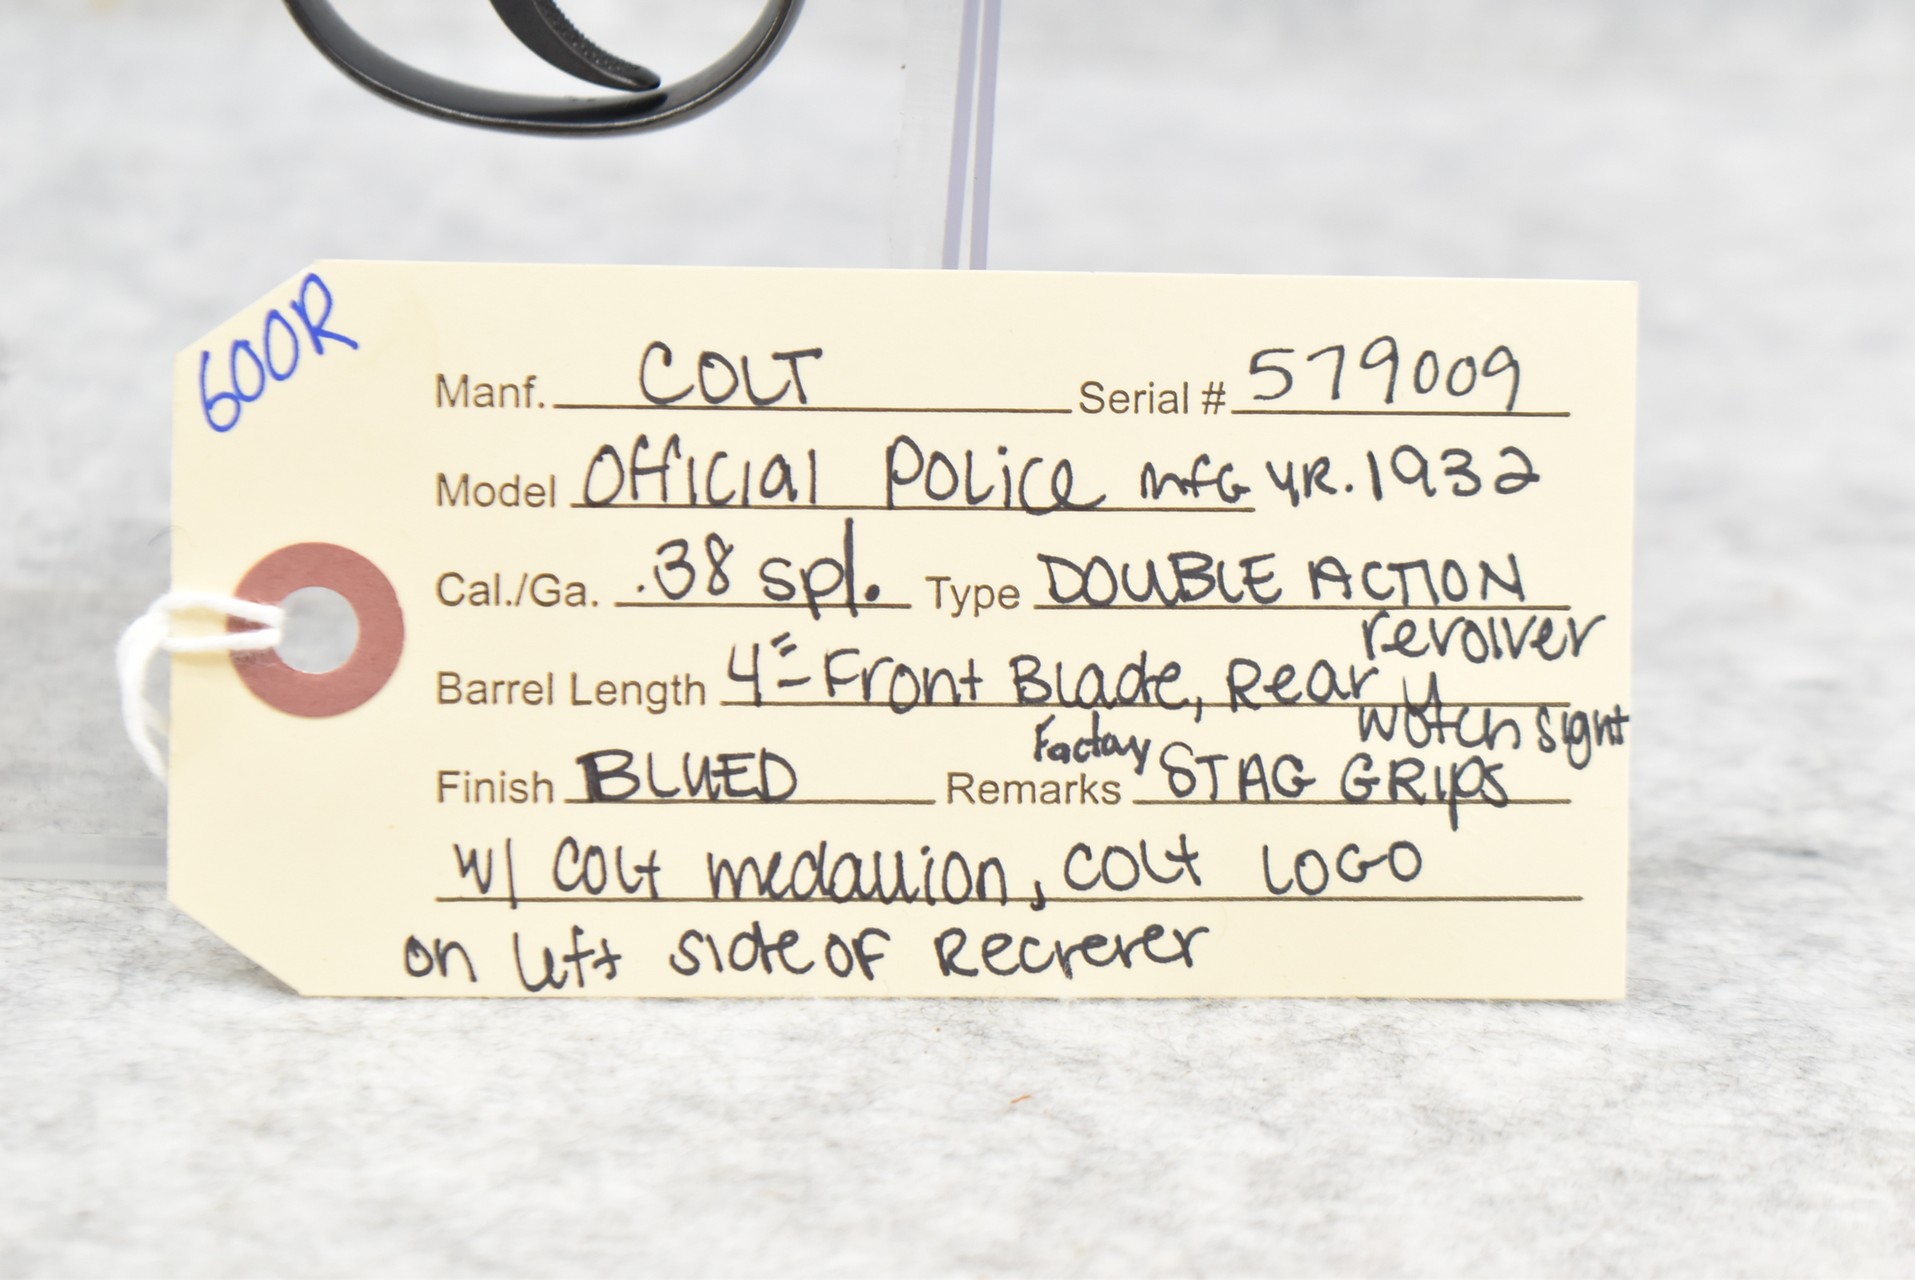 600R
Manf. COLT Serial # 579009
Model Official Police mfG YR. 1932
Cal./Ga. .38 spl. Type DOUBLE ACTION
revolver
Barrel Length 4" - Front Blade, Rear U
Notch sight
Finish BLUED Remarks Factory STAG GRIPS
w/ Colt medallion, COLT LOGO
on left side of Reciever